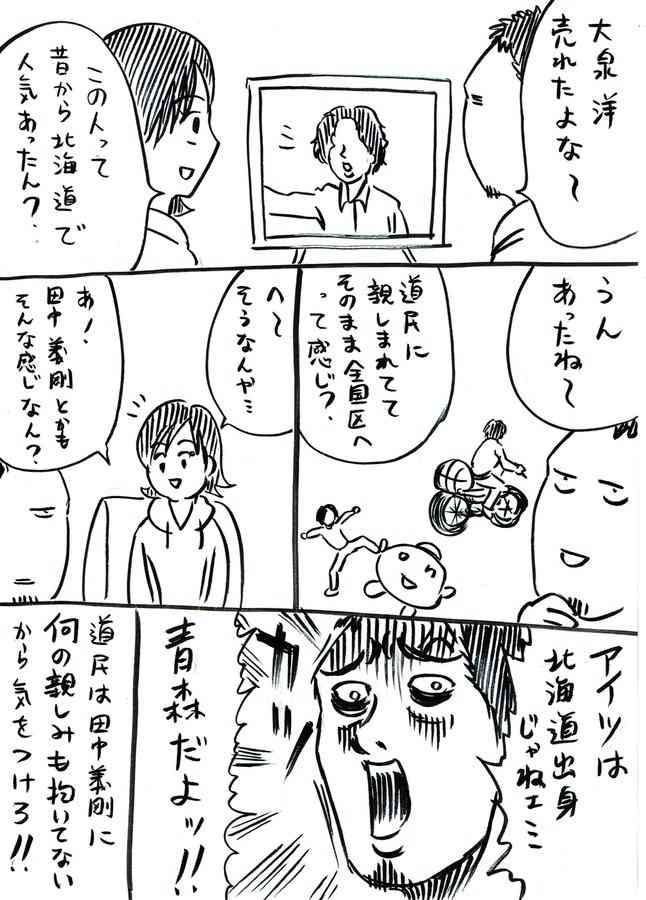 大泉洋
売れたよな〜
この人って
昔から北海道で
人気あったん?
うん
あったね〜
道民に
親しまれてて
そのまま全国区へ
って感じ?
へ〜
そうなんや…
あ!
田中義剛とかも
そんな感じなん?
アイツは
北海道出身
じゃねェ…
青森だよッ!!
道民は田中義剛に
何の親しみも抱いてない
から気をつけろ!!